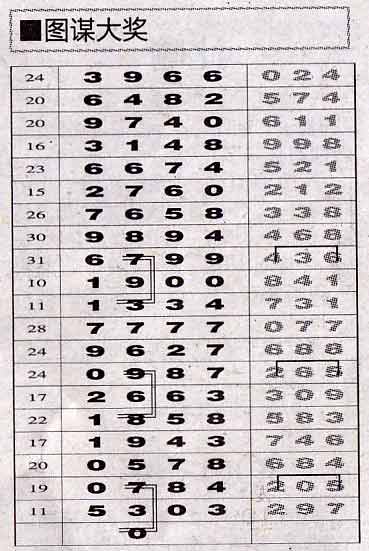 ■图谋大奖
24 3 9 6 6 0 2 4
20 6 4 8 2 5 7 4
20 9 7 4 0 6 1 1
16 3 1 4 8 9 9 8
23 6 6 7 4 5 2 1
15 2 7 6 0 2 1 2
26 7 6 5 8 3 3 8
30 9 8 9 4 4 6 8
31 6 7 9 9 4 3 6
10 1 9 0 0 8 4 1
11 1 3 3 4 7 3 1
28 7 7 7 7 0 7 7
24 9 6 2 7 6 8 8
24 0 9 8 7 2 6 5
17 2 6 6 3 3 0 9
22 1 8 5 8 5 8 3
17 1 9 4 3 7 4 6
20 0 5 7 8 6 8 4
19 0 7 8 4 2 0 5
11 5 3 0 3 2 9 7
0